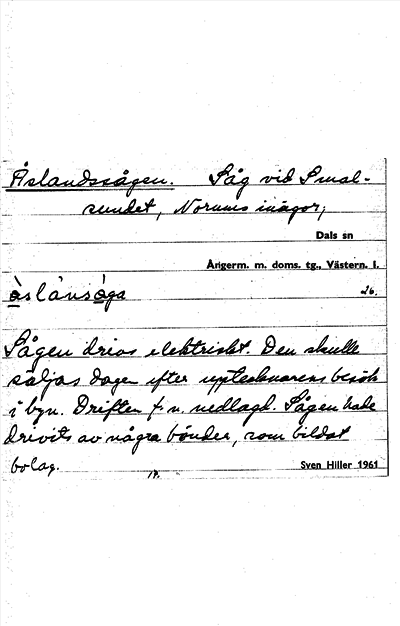 Åslandssågen. Såg vid Smal-
sundet, Norums inägor,
Dals sn
Ångerm. m. doms. tg., Västern. l.
åslånsåga 26.
Sågen drivs elektriskt. Den skulle
säljas dagen efter upptecknarens besök
i byn. Driften f. n. nedlagd. Sågen hade
drivits av några bönder, som bildat
bolag.
Sven Hiller 1961